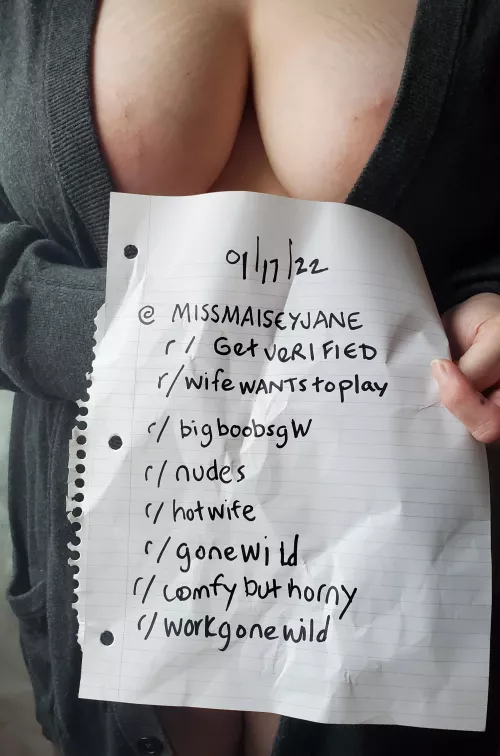 01/17/22
@ MISSMAISEYJANE
r/ GetVERIFIED
r/wifeWANTStoplay
r/bigboobsgW
r/nudes
r/hotwife
r/gonewild
r/comfybuthorny
r/workgonewild